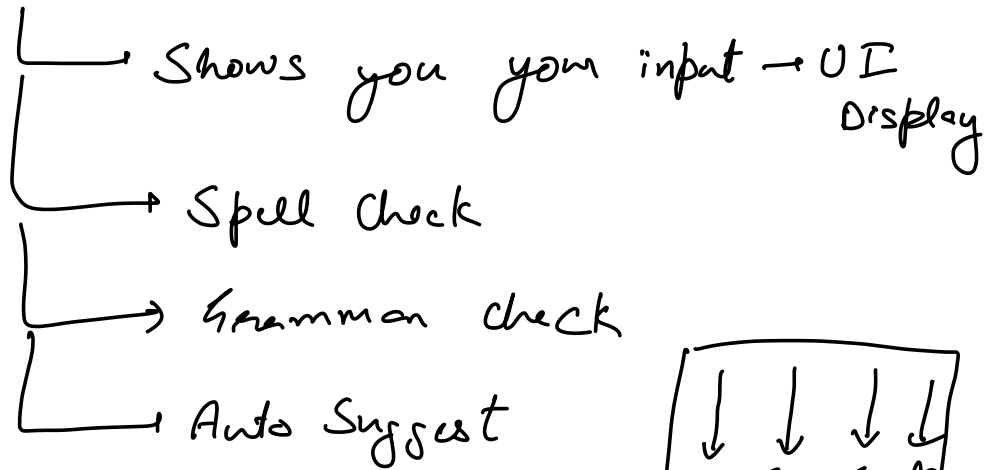 Shows you your input → UI
Display
Spell Check
Grammar check
Auto Suggest